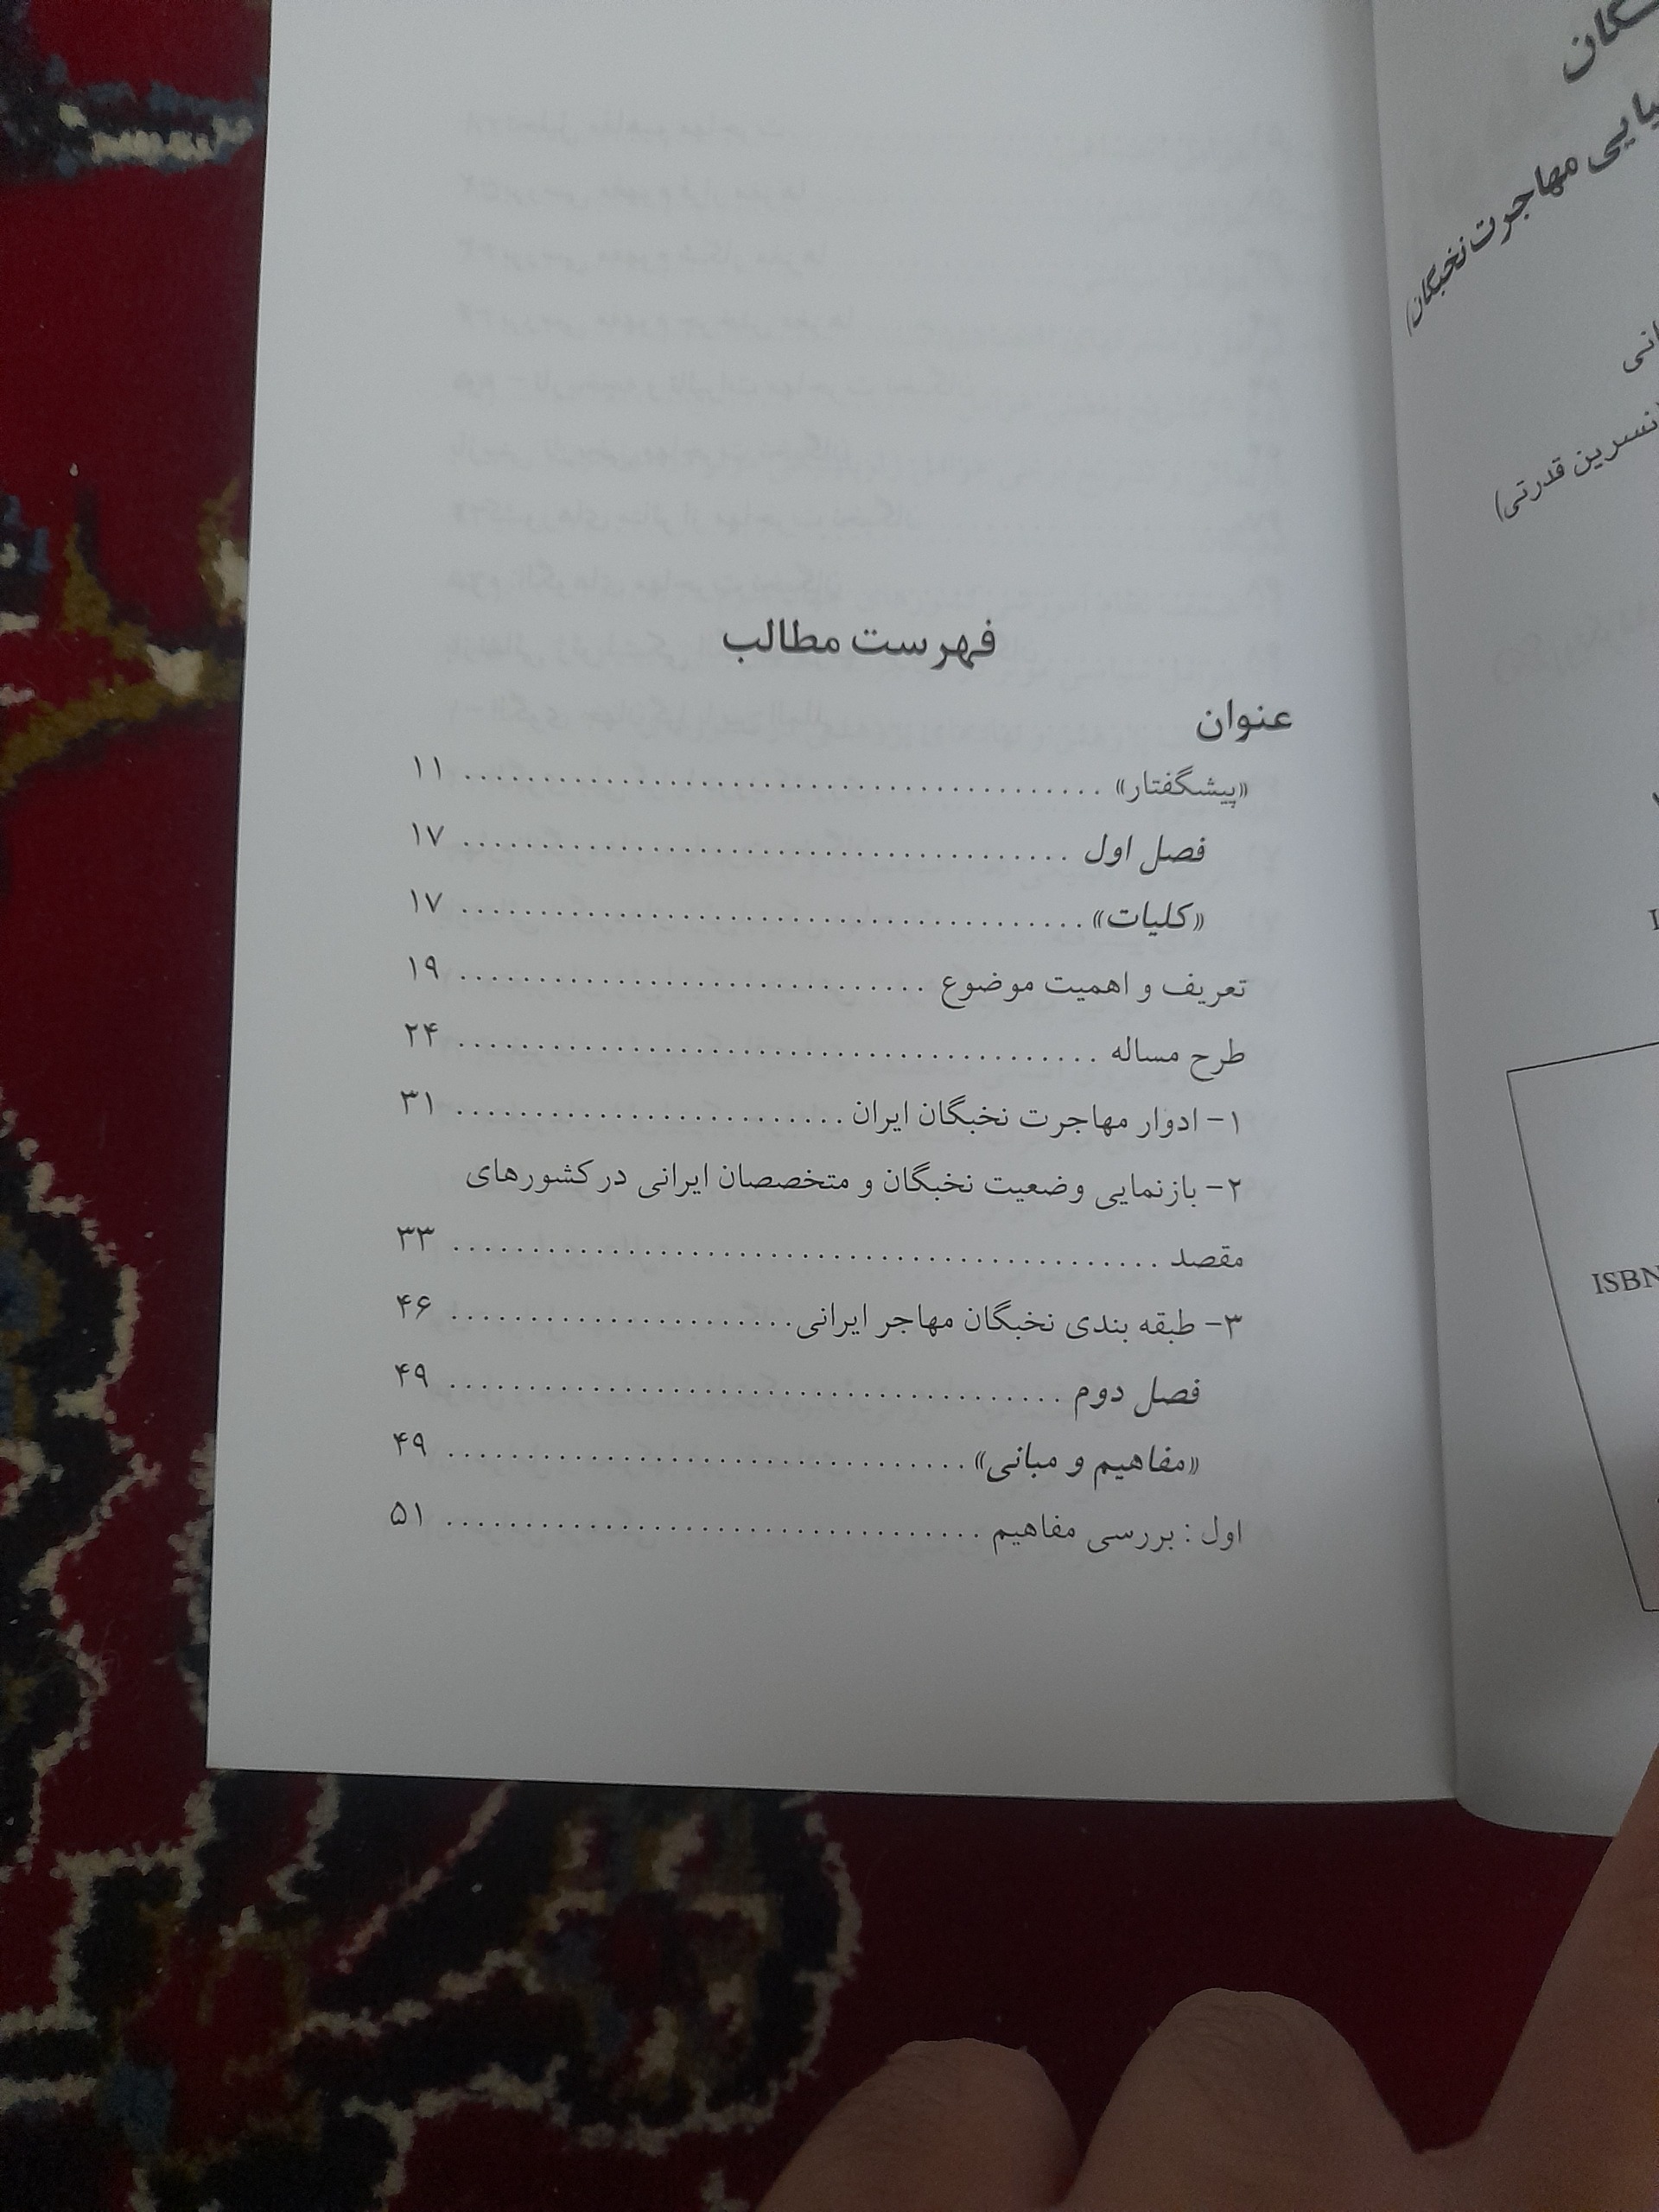 فهرست مطالب
عنوان
«پیشگفتار» ........................................ ۱۱
فصل اول ........................................ ۱۷
«کلیات» ........................................ ۱۷
تعریف و اهمیت موضوع .............................. ۱۹
طرح مساله ........................................ ۲۴
۱- ادوار مهاجرت نخبگان ایران ......................... ۳۱
۲- بازنمایی وضعیت نخبگان و متخصصان ایرانی در کشورهای
مقصد ............................................. ۳۳
۳- طبقه بندی نخبگان مهاجر ایرانی ...................... ۴۶
فصل دوم ........................................ ۴۹
«مفاهیم و مبانی» ................................. ۴۹
اول : بررسی مفاهیم .................................. ۵۱
مهاجرت نخبگان)
نسرین قدرتی)
ISBN